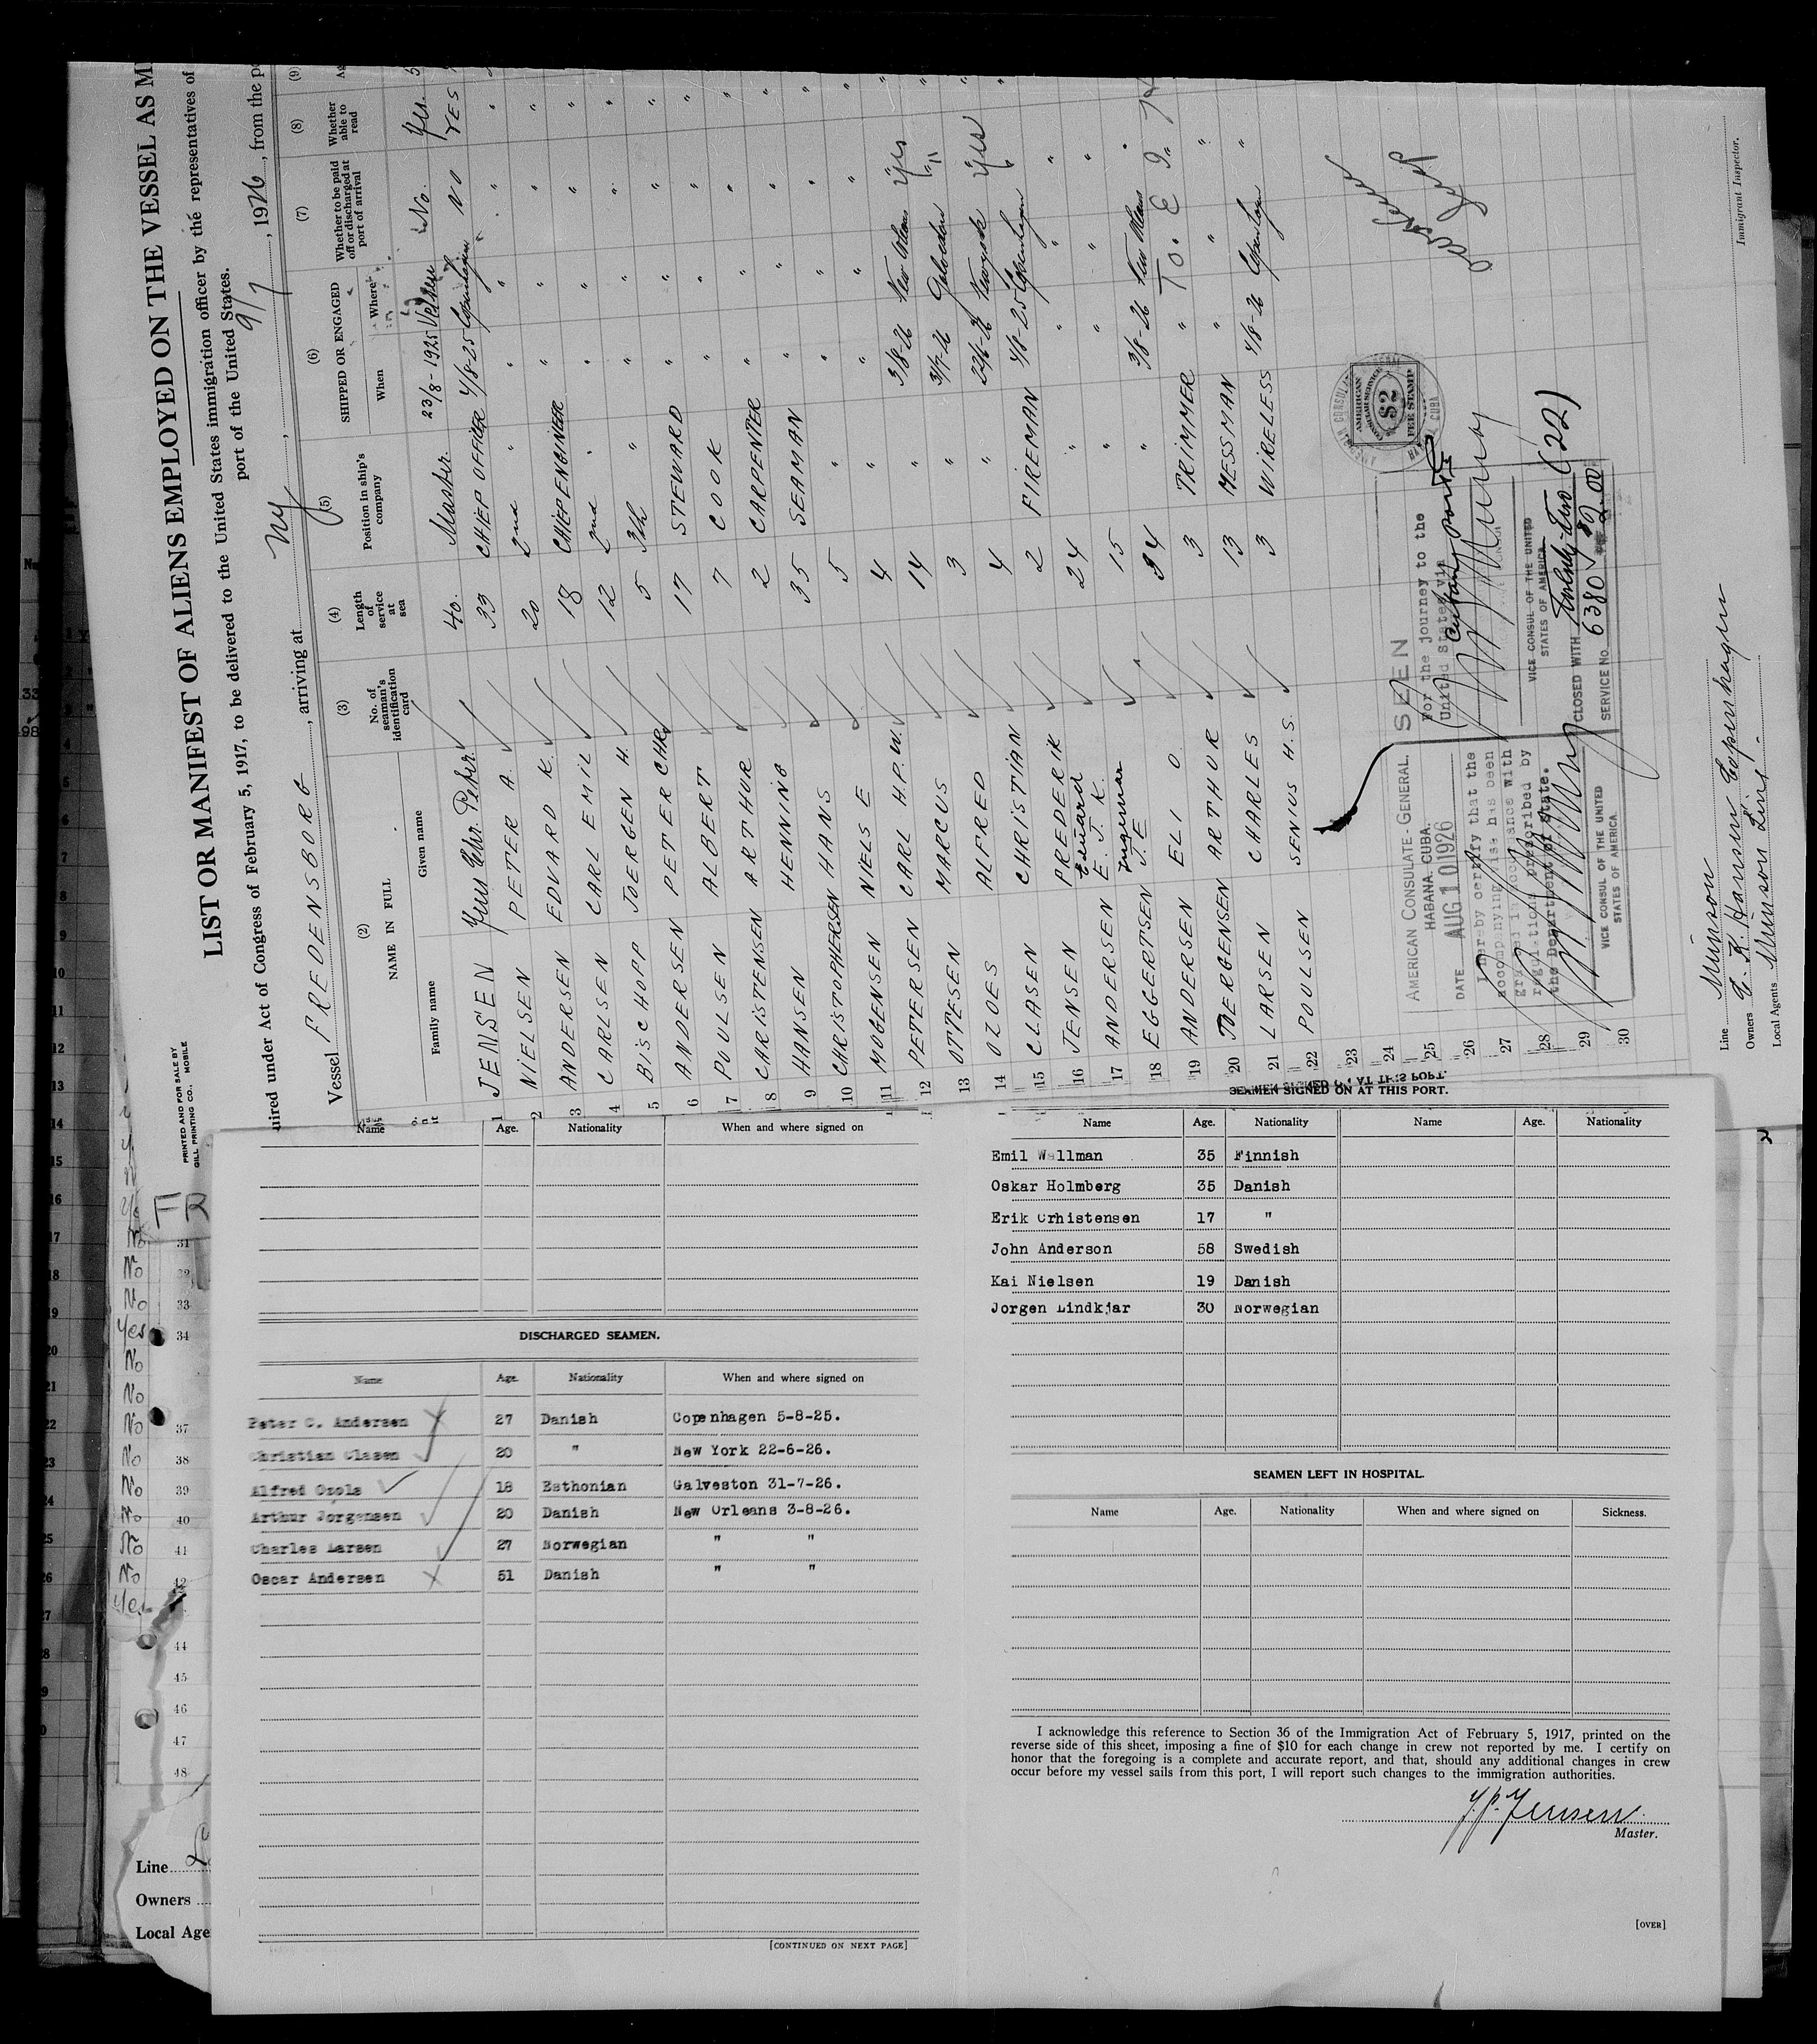 LIST OR MANIFEST OF ALIENS EMPLOYED ON THE VESSEL AS M
uired under Act of Congress of February 5, 1917, to be delivered to the United States immigration officer by the representatives of
port of the United States.
Vessel FREDENSBORG, arriving at NY, 9/7, 1926, from the po
(2) (3) (4) (5) (6) (7) (8) (9)
NAME IN FULL
Family name Given name
No. of seaman's identification card
Length of service at sea
Position in ship's company
SHIPPED OR ENGAGED
When Where
Whether to be paid off or discharged at port of arrival
Whether able to read
1 JENSEN Jens Chr. Peter. 40. Master. 23/8-1925 No. Yes.
2 NIELSEN PETER A. 33 CHIEF OFFICER 4/8-25 Copenhagen NO YES
3 ANDERSEN EDVARD K. 20 2nd " " " " "
4 CARLSEN CARL EMIL 18 CHIEF ENGINEER " " " "
5 BISCHOPP JOERGEN H. 12 2nd " " " " "
6 ANDERSEN PETER CHR. 5 3th " " " " "
7 POULSEN ALBERT 17 STEWARD " " " "
8 CHRISTENSEN ARTHUR 7 COOK " " " "
9 HANSEN HENNING 2 CARPENTER " " " "
10 CHRISTOPHERSEN HANS 35 SEAMAN " " " "
11 MOGENSEN NIELS E 5 " " " " "
12 PETERSEN CARL H.P.W. 4 " 3/8-26 New Orleans Yes "
13 OTTESEN MARCUS 14 " 31/7-26 Galveston " "
14 OZOES ALFRED 3 " 22/6-26 Newyork Yes "
15 CLASEN CHRISTIAN 4 " 4/8-25 Copenhagen " "
16 JENSEN FREDERIK 2 FIREMAN " " "
17 ANDERSEN Eduard E. J. K. 24 " " " "
18 EGGERTSEN Ingemar J. E. 15 " 3/8-26 New Orleans "
19 ANDERSEN ELI O. 34 " " To. E
20 JOERGENSEN ARTHUR 3 TRIMMER " " "
21 LARSEN CHARLES 13 MESSMAN 4/8-26 Copenhagen "
22 POULSEN SENIUS H.S. 3 WIRELESS
23
24
25
26
27
28
29
30
AMERICAN CONSULATE-GENERAL,
HABANA, CUBA.
DATE AUG 10 1926
I hereby certify that the
accompanying visa has been
granted in accordance with
regulations prescribed by
the Department of State.
VICE CONSUL OF THE UNITED
STATES OF AMERICA.
SEEN
For the journey to the
United States via
Cuban Ports
VICE CONSUL OF THE UNITED
STATES OF AMERICA.
CLOSED WITH Twenty-Two (22)
SERVICE No. 6380 $2.00
AMERICAN CONSULAR SERVICE
$2
FEE STAMP
Line Munson
Owners C. K. Hansen Copenhagen
Local Agents Munson Line.
Immigrant Inspector.
PRINTED AND FOR SALE BY
GILL PRINTING CO., MOBILE
FR
Name Age. Nationality When and where signed on
DISCHARGED SEAMEN.
Name Age. Nationality When and where signed on
Peter C. Andersen 27 Danish Copenhagen 5-8-25.
Christian Clasen 20 " New York 22-6-26.
Alfred Ozols 18 Esthonian Galveston 31-7-26.
Arthur Jorgensen 20 Danish New Orleans 3-8-26.
Charles Larsen 27 Norwegian " "
Oscar Andersen 51 Danish " "
[CONTINUED ON NEXT PAGE]
SEAMEN SIGNED ON AT THIS PORT.
Name Age. Nationality Name Age. Nationality
Emil Wallman 35 Finnish
Oskar Holmberg 35 Danish
Erik Crhistensen 17 "
John Anderson 58 Swedish
Kai Nielsen 19 Danish
Jorgen Lindkjar 30 Norwegian
SEAMEN LEFT IN HOSPITAL.
Name Age. Nationality When and where signed on Sickness.
I acknowledge this reference to Section 36 of the Immigration Act of February 5, 1917, printed on the
reverse side of this sheet, imposing a fine of $10 for each change in crew not reported by me. I certify on
honor that the foregoing is a complete and accurate report, and that, should any additional changes in crew
occur before my vessel sails from this port, I will report such changes to the immigration authorities.
J.P. Jensen
Master.
[OVER]
Line
Owners
Local Age